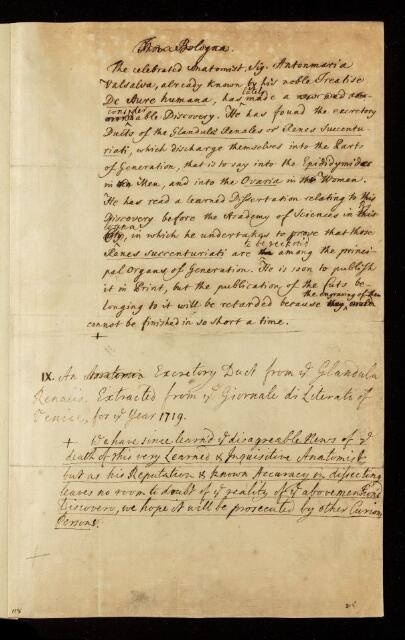 From Bologna.
The celebrated Anatomist, Sig. Antonmaria
Valsalva, already known by his noble Treatise
De Aure humana, has lately made a new and
considerable Discovery. He has found the excretory
Ducts of the Glandulæ Renales or Renes Succentu-
riati, which discharge themselves into the Parts
of Generation, that is to say into the Epididymides
in Men, and into the Ovaria in Women.
He has read a learned Dissertation relating to this
Discovery before the Academy of Sciences in
, in which he undertakes to prove that those
Renes succenturiati are to be reckon'd among the princi-
pal Organs of Generation. He is soon to publish
it in Print, but the publication of the Cuts be
longing to it will be retarded because the engraving of them
cannot be finished in so short a time.
+
IX. An Anatomic Excretory Duct from yᵉ Glandula
Renalis. Extracted from yᵉ Giornale di Literati of
Venice, for yᵉ Year 1719.
+ We have since learnd yᵉ disagreable News of yᵉ
death of this very Learned & Inquisitive Anatomist
but as his Reputation & known Accuracy in dissecting
leaves no room to doubt of yᵉ reality of yᵉ abovementiond
Discovery, we hope it will be prosecuted by other Curious
Persons.
+